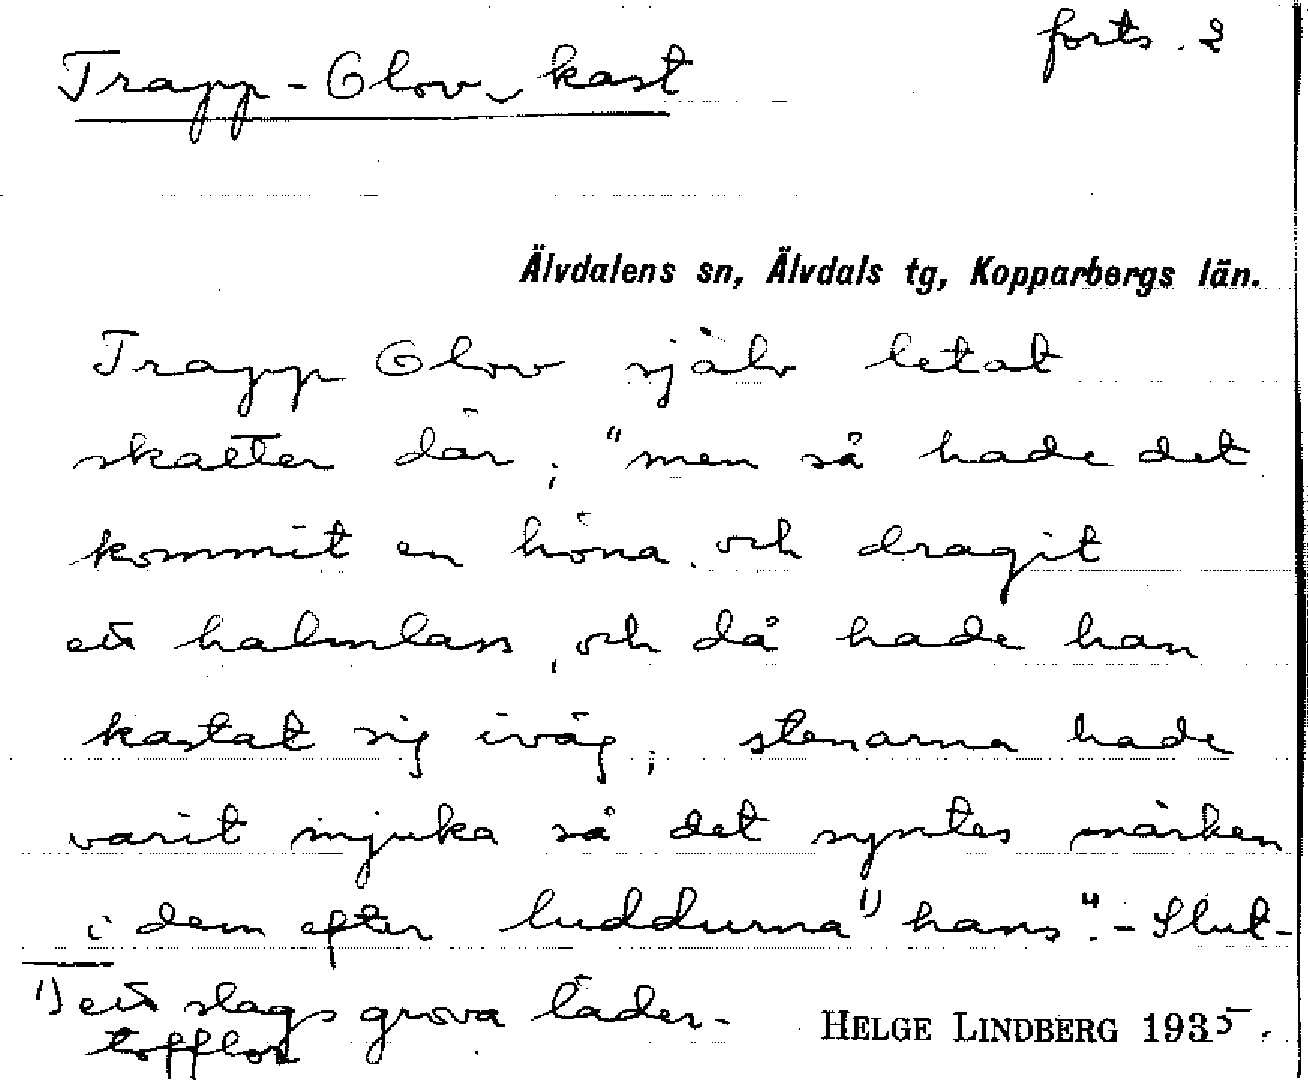 forts. 2
Trapp-Olov-kast
Älvdalens sn, Älvdals tg, Kopparbergs län.
Trapp Olov själv letat
skatter där; "men så hade det
kommit en höna och dragit
ett halmlass, och då hade han
kastat sig iväg; stenarna hade
varit mjuka så det syntes märken
i dem efter luddurna¹⁾ hans". - Slut-
1) ett slags grova läder-
tofflor
HELGE LINDBERG 1935.